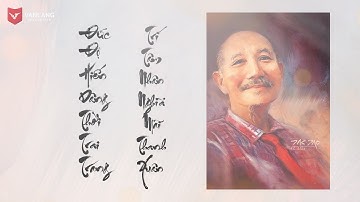 Đức
Độ
Hiến
Dâng
Thời
Trai
Tráng
Trí
Tâm
Nhân
Nghĩa
Mãi
Thanh
Xuân